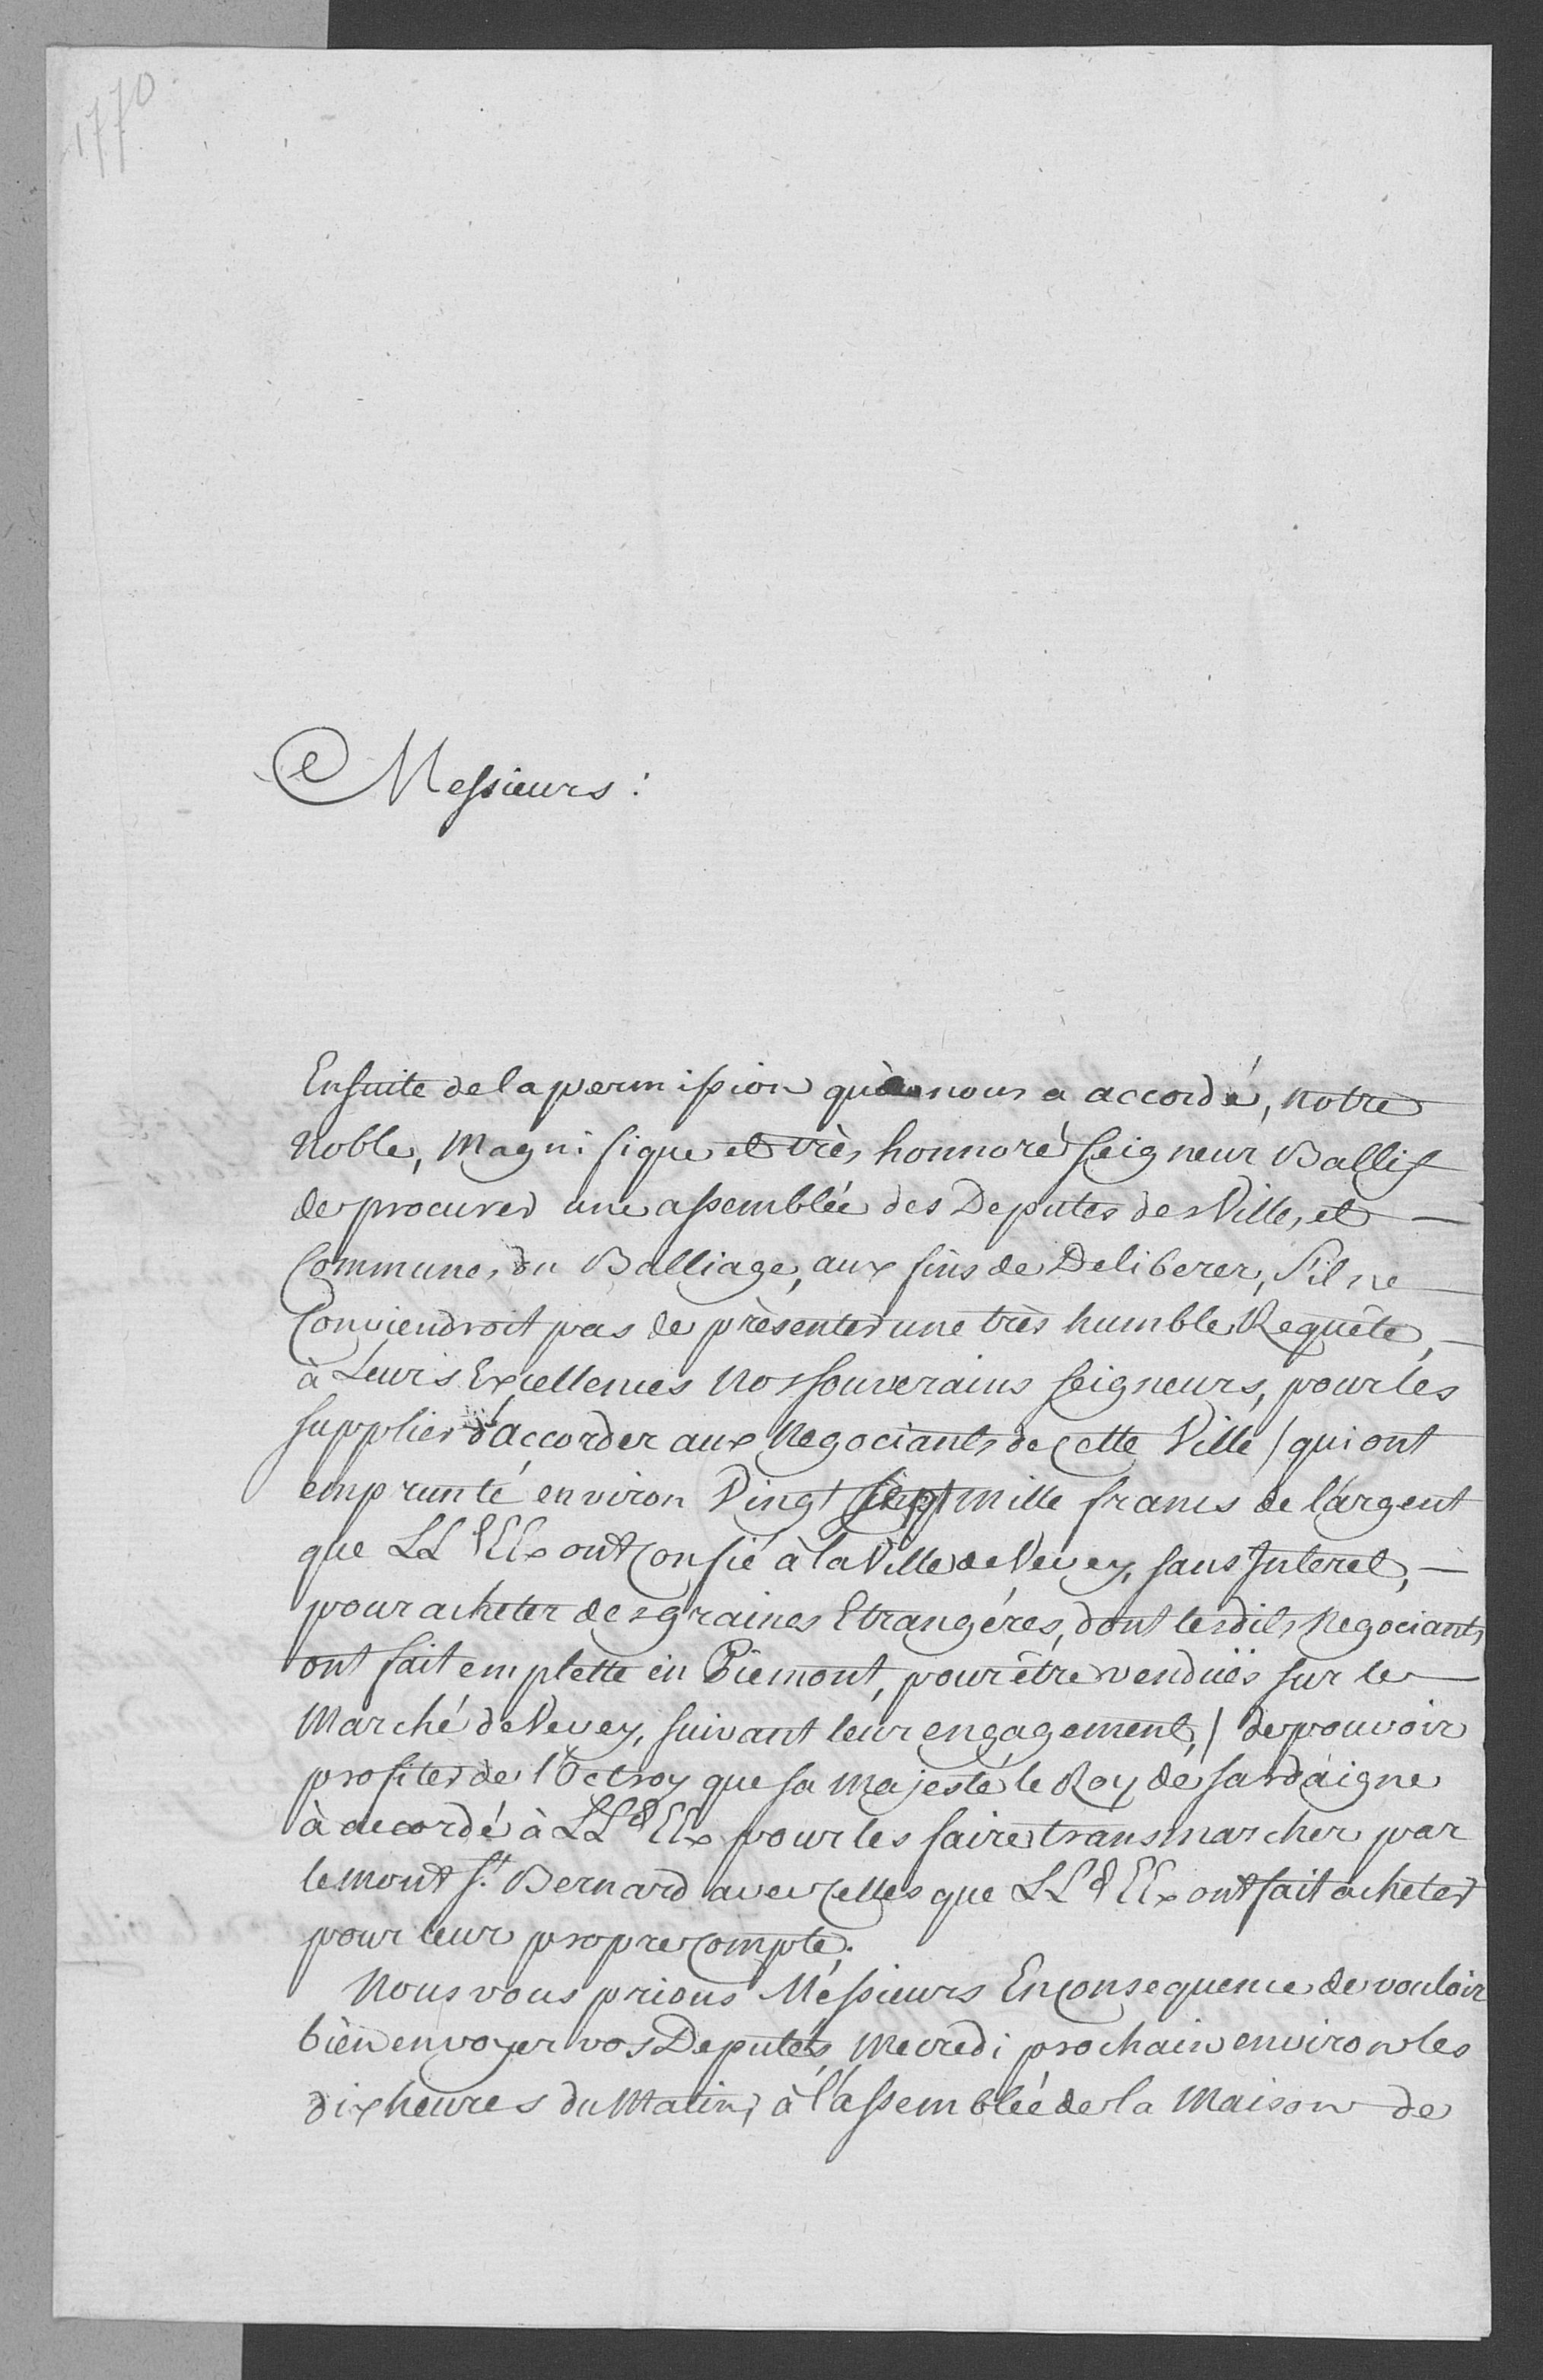 1770
Messieurs:
Ensuite de la permission què nous a accordé, notre
Noble, Magnifique et très honnoré Seigneur Ballif
de procurer une assemblée des Deputes des Ville, et
Commune, du Balliage, aux fins de Deliberer, S'il ne
Conviendroit pas de présenter une très humble Requête,
à Leurs Excellences Nos souverains Seigneurs, pour les
supplier d'accorder aux Negociants de cette Ville / qui ont
emprunté environ Vingt sept mille francs de l'argent
que LL EEx ont confié à la Ville de Vevey, sans Interet,
pour acheter des graines Etrangéres, dont lesdits Negociants
ont fait emplette en Piemont, pour être venduës sur le
Marché de Vevey, suivant leur engagement, / de pouvoir
profiter de l'Octroy que sa Majesté le Roy de Sardaigne
à accordé à LL EEx pour les faire transmarcher par
le mont St. Bernard avec celles que LL EEx ont fait acheter
pour leur propre compte.
Nous vous prions Méssieurs En consequence de vouloir
bien envoyer vos Deputés, Mecredi prochain environ les
dix heures du Matin, à l'assemblée de la Maison de